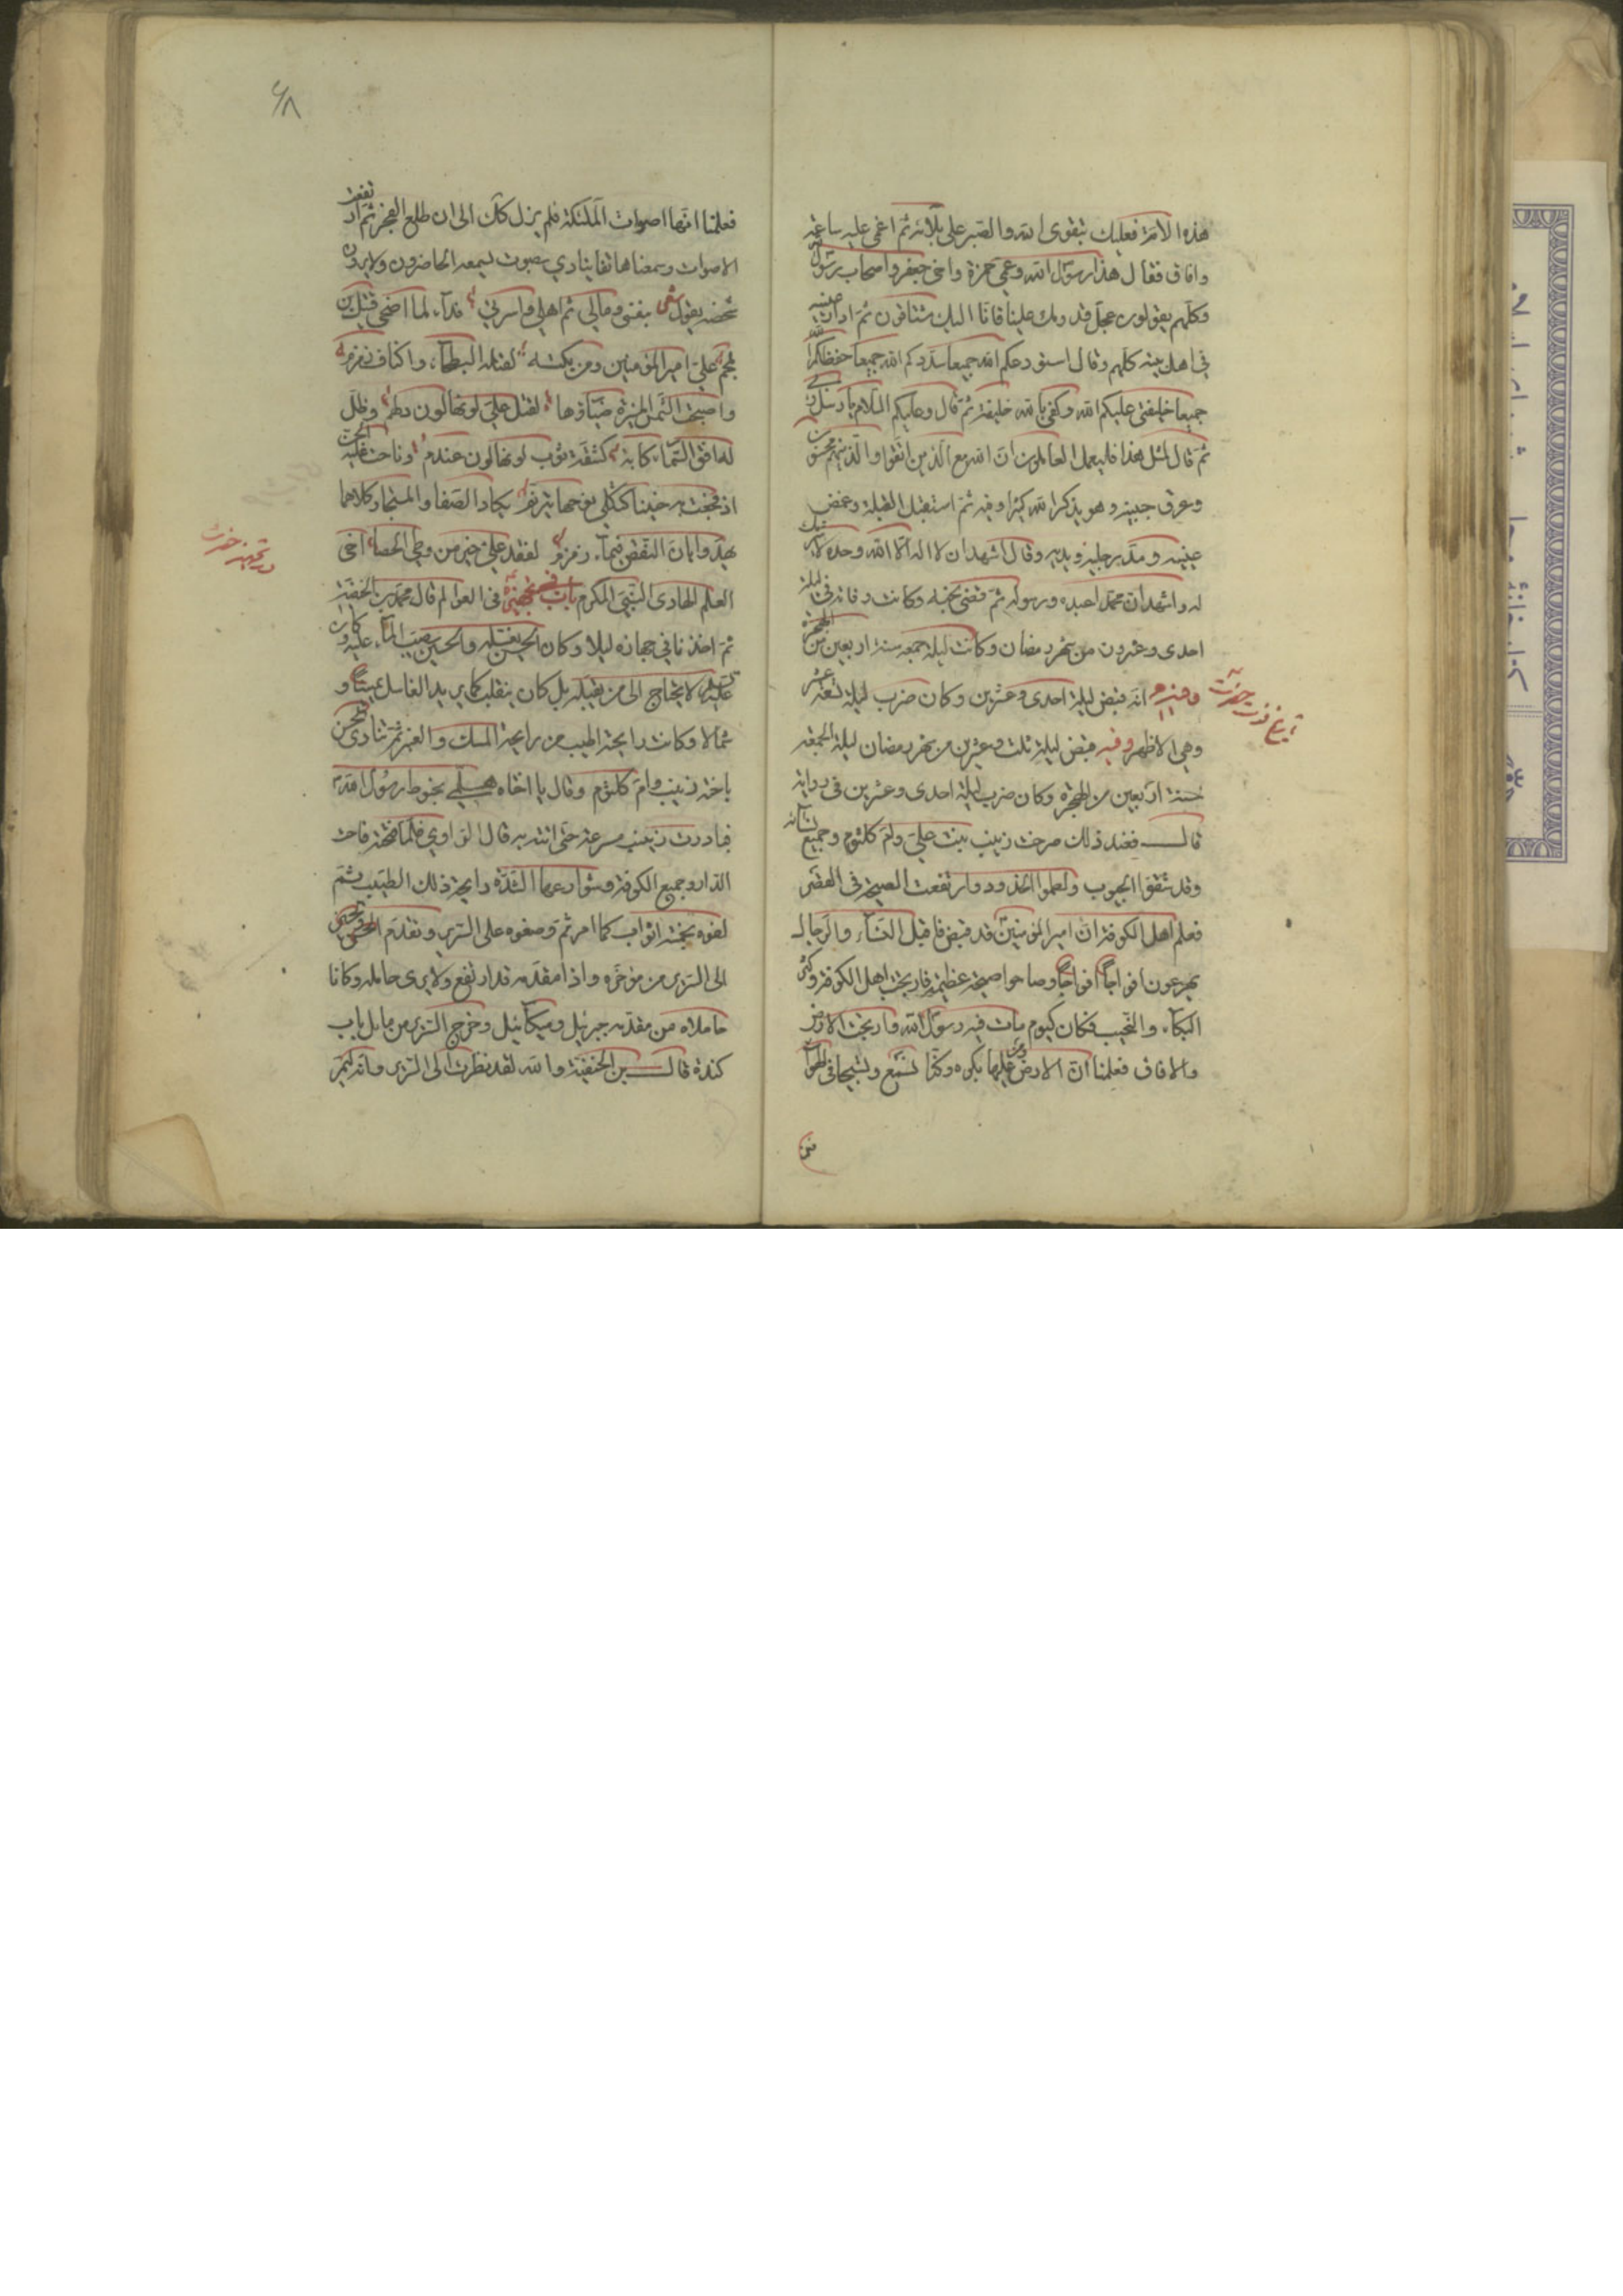 هذه الامة فعليك بتقوى الله والصبر على بلائه ثم اغمى عليه ساعة
وافاق فقال هذا رسول الله وعمي حمزة واخي جعفر واصحاب رسول الله
وكلهم يقولون عجل قدومك علينا فانا اليك مشتاقون ثم ادار عينيه
في اهل بيته كلهم وقال استودعكم الله جميعا سددكم الله جميعا حفظكم الله
جميعا خليفتي عليكم الله وكفى بالله خليفة ثم قال وعليكم السلام يا رسل ربي
ثم قال لمثل هذا فليعمل العاملون ان الله مع الذين اتقوا والذين هم محسنون
وعرق جبينه وهو يذكر الله كثيرا وفيه ثم استقبل القبلة وغمض
عينيه ومد رجليه ويديه وقال اشهد ان لا اله الا الله وحده لا شريك
له واشهد ان محمدا عبده ورسوله ثم قضى نحبه وكانت وفاته في ليلة
احدى وعشرون من شهر رمضان وكانت ليلة جمعه سنة اربعين من الهجرة
انه قبض ليلة احدى وعشرين وكان ضرب ليلة تسعة عشر
وهي الاظهر وفيه قبض ليلة ثلث وعشرين من شهر رمضان ليلة الجمعة
سنة اربعين من الهجرة وكان ضرب ليلة احدى وعشرين في رواية
قال فعند ذلك صرخت زينب بنت علي وام كلثوم وجميع نسائه
وقد شققوا الجيوب ولطموا الخدود وارتفعت الصيحة في القصر
فعلم اهل الكوفة ان امير المؤمنين قد قبض فاقبل النساء والرجال
يهرعون افواجا افواجا وصاحوا صيحة عظيمة فارتجت اهل الكوفة وكثر
البكاء والنحيب فكان كيوم مات فيه رسول الله وارتجت الارض
والافاق فعلمنا ان الارض ومن عليها يكره وكنا نسمع وتسبيحا في الهواء
تاريخ فوت حضرت
۶۸
فعلمنا انها اصوات الملئكة فلم يزل كك الى ان طلع الفجر ثم ارتفعت
الاصوات وسمعنا هاتفا ينادي بصوت يسمعه الحاضرون ولا يرون
شخصه يقول شعر بنفسي ومالي ثم اهلي واسرتي فداء لمن اضحى قتيل بن
ملجم علي امير المؤمنين ومن بكت لقتله البطحاء واكناف زمزم
واصبحت الشمس المنيرة ضياؤها لقتل علي لونها لون دلهم وظل
له افق السماء كابة كشقة ثوب لونها لون عندم وناحت عليه الجن
اذ فجعت به حنينا كثكلى نوحها بترنم يكاد الصفا والمستجار كلاهما
يهدوا بان النقض فيماء زمزم لفقد علي خير من وطي الحصا اخي
العلم الهادى النبي المكرم باب في تجهيزه في العوالم قال محمد بن الحنفية
ثم اخذنا في جهازه ليلا وكان الحسن يغسله والحسين يصب الماء عليه وكان
عليه السلام لا يحتاج الى من يقلبه بل كان ينقلب كما يريد الغاسل يمينا و
شمالا وكانت رايحة اطيب من رايحة المسك والعنبر ثم نادى الحسن
باخته زينب وام كلثوم وقال يا اختاه هلمي بحنوط رسول الله
فبادرت زينب مسرعة حتى اتته به قال الراوي فلما فتحته فاحت
الدار وجميع الكوفة وشوارعها لشدة رايحة ذلك الطيب ثم
لفوه بخمسة اثواب كما امر ثم وضعوه على السرير وتقدم الحسن والحسين
الى السرير من مؤخره واذا مقدمه قد ارتفع ولا يرى حامله وكانا
حاملاه من مقدمه جبرئيل وميكائيل وخرج السرير من مايل باب
كندة قال بن الحنفية والله لقد نظرت الى السرير وانه ليمر
در تجهيز حضرت